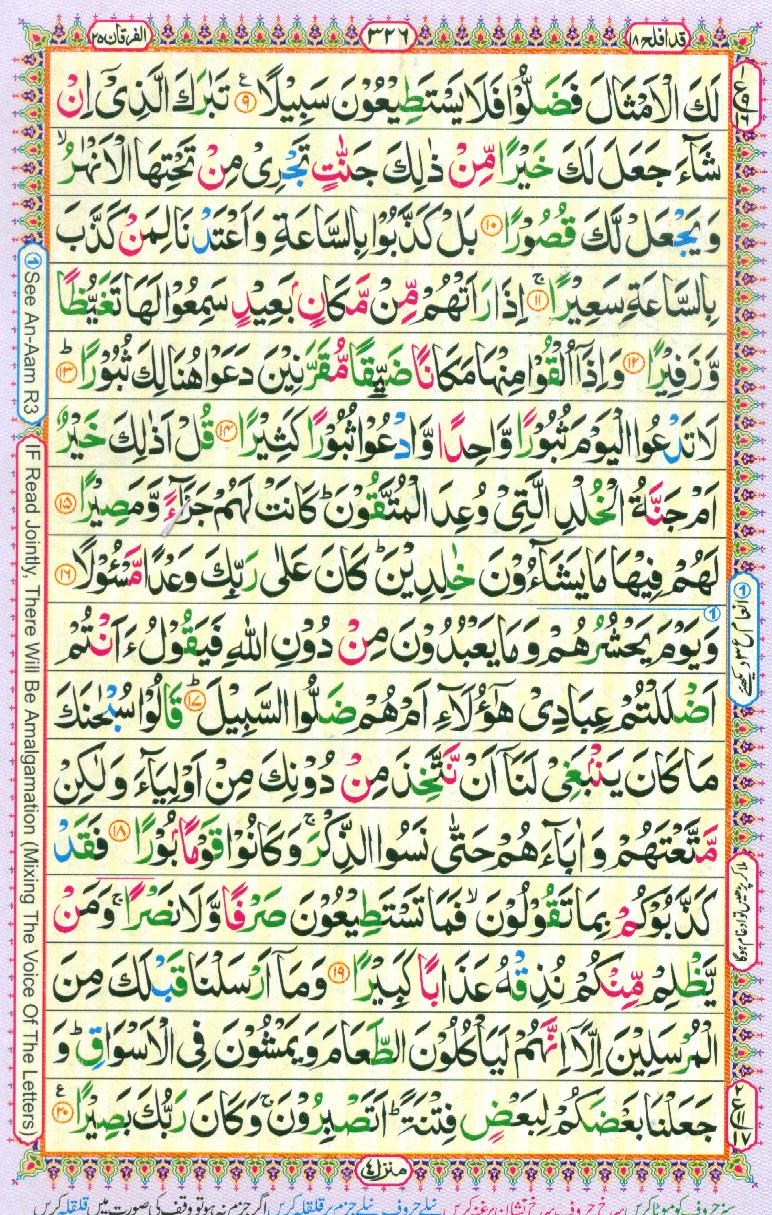 قد افلح ۱۸
۳۲۶
الفرقان ۲۵
لَكَ الْاَمْثَالَ فَضَلُّوْا فَلَا یَسْتَطِیْعُوْنَ سَبِیْلًا ۹ تَبٰرَكَ الَّذِیْۤ اِنْ
شَآءَ جَعَلَ لَكَ خَیْرًا مِّنْ ذٰلِكَ جَنّٰتٍ تَجْرِیْ مِنْ تَحْتِهَا الْاَنْهٰرُۙ
وَیَجْعَلْ لَّكَ قُصُوْرًا ۱۰ بَلْ كَذَّبُوْا بِالسَّاعَةِ وَاَعْتَدْنَا لِمَنْ كَذَّبَ
بِالسَّاعَةِ سَعِیْرًاۚ ۱۱ اِذَا رَاَتْهُمْ مِّنْ مَّكَانٍۭ بَعِیْدٍ سَمِعُوْا لَهَا تَغَیُّظًا
وَّزَفِیْرًا ۱۲ وَاِذَاۤ اُلْقُوْا مِنْهَا مَكَانًا ضَیِّقًا مُّقَرَّنِیْنَ دَعَوْا هُنَالِكَ ثُبُوْرًاؕ ۱۳
لَا تَدْعُوا الْیَوْمَ ثُبُوْرًا وَّاحِدًا وَّادْعُوْا ثُبُوْرًا كَثِیْرًا ۱۴ قُلْ اَذٰلِكَ خَیْرٌ
اَمْ جَنَّةُ الْخُلْدِ الَّتِیْ وُعِدَ الْمُتَّقُوْنَؕ كَانَتْ لَهُمْ جَزَآءً وَّمَصِیْرًا ۱۵
لَهُمْ فِیْهَا مَا یَشَآءُوْنَ خٰلِدِیْنَؕ كَانَ عَلٰی رَبِّكَ وَعْدًا مَّسْـُٔوْلًا ۱۶
وَیَوْمَ یَحْشُرُهُمْ وَمَا یَعْبُدُوْنَ مِنْ دُوْنِ اللّٰهِ فَیَقُوْلُ ءَاَنْتُمْ
اَضْلَلْتُمْ عِبَادِیْ هٰۤؤُلَآءِ اَمْ هُمْ ضَلُّوا السَّبِیْلَؕ ۱۷ قَالُوْا سُبْحٰنَكَ
مَا كَانَ یَنْۢبَغِیْ لَنَاۤ اَنْ نَّتَّخِذَ مِنْ دُوْنِكَ مِنْ اَوْلِیَآءَ وَلٰكِنْ
مَّتَّعْتَهُمْ وَاٰبَآءَهُمْ حَتّٰی نَسُوا الذِّكْرَۚ وَكَانُوْا قَوْمًۢا بُوْرًا ۱۸ فَقَدْ
كَذَّبُوْكُمْ بِمَا تَقُوْلُوْنَۙ فَمَا تَسْتَطِیْعُوْنَ صَرْفًا وَّلَا نَصْرًاۚ وَمَنْ
یَّظْلِمْ مِّنْكُمْ نُذِقْهُ عَذَابًا كَبِیْرًا ۱۹ وَمَاۤ اَرْسَلْنَا قَبْلَكَ مِنَ
الْمُرْسَلِیْنَ اِلَّاۤ اِنَّهُمْ لَیَاْكُلُوْنَ الطَّعَامَ وَیَمْشُوْنَ فِی الْاَسْوَاقِؕ وَ
جَعَلْنَا بَعْضَكُمْ لِبَعْضٍ فِتْنَةًؕ اَتَصْبِرُوْنَۚ وَكَانَ رَبُّكَ بَصِیْرًا ۲۰
منزل ۴
① See An-Aam R3
IF Read Jointly, There Will Be Amalgamation (Mixing The Voice Of The Letters)